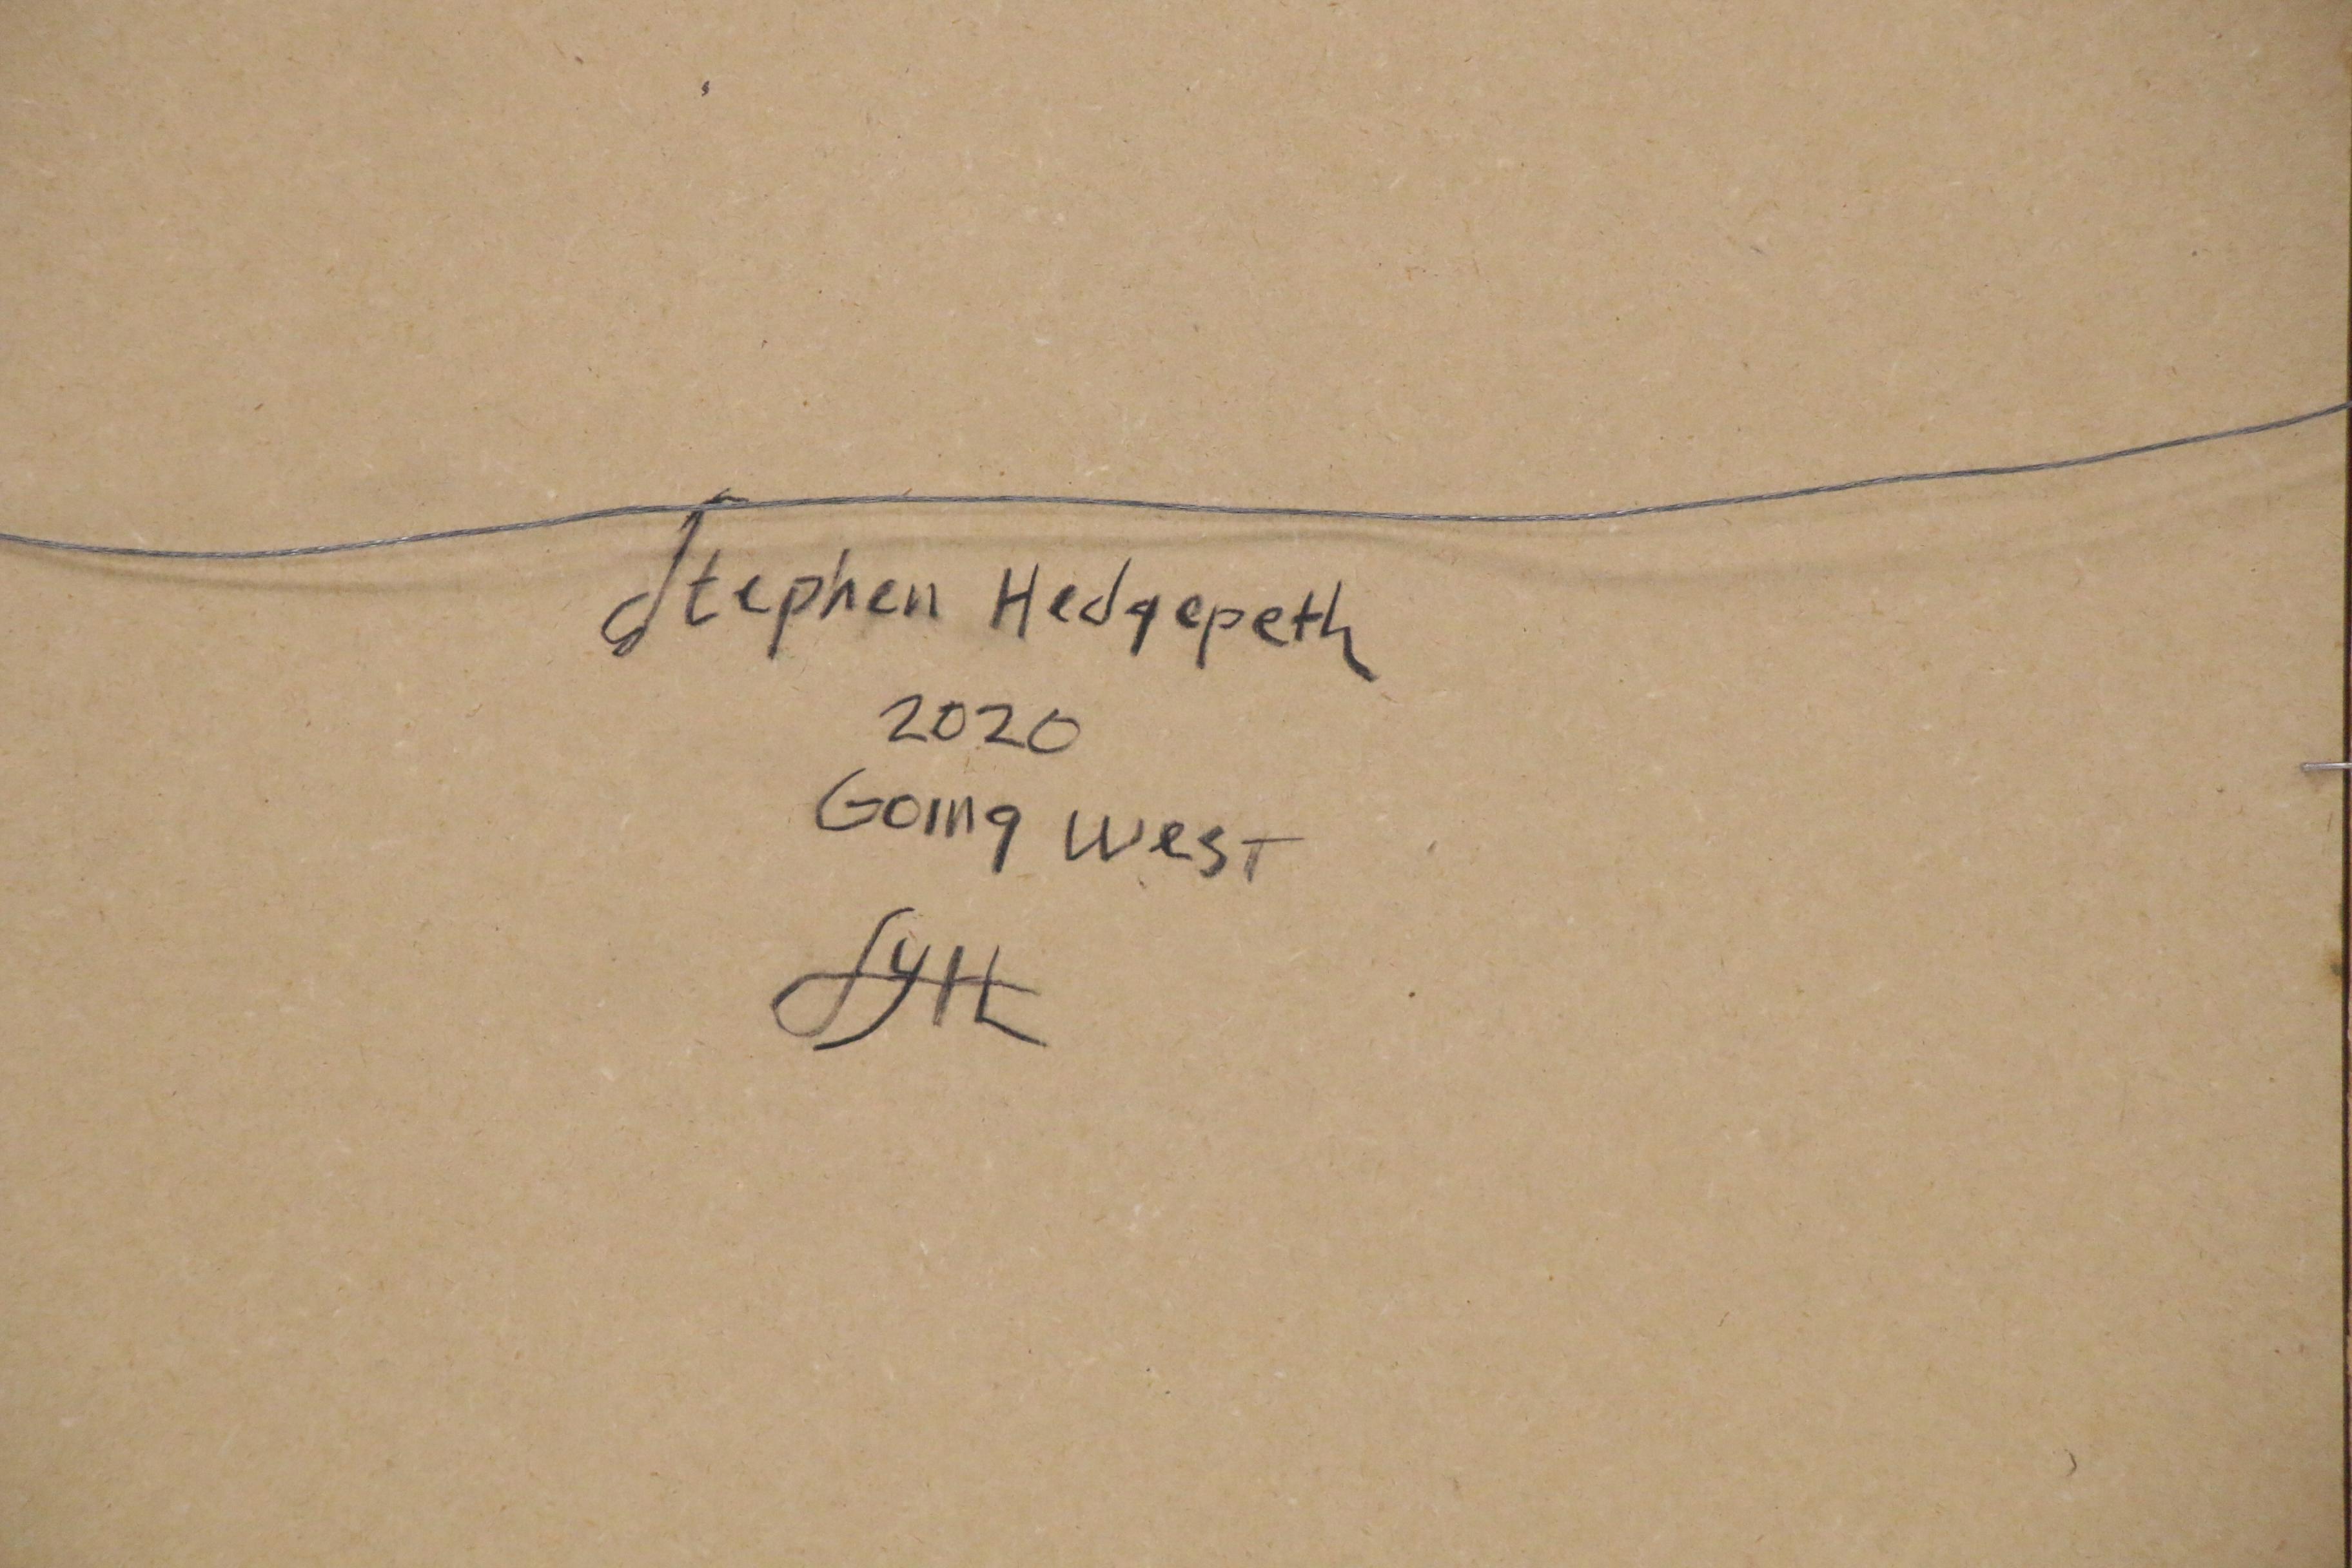 Stephen Hedgepeth
2020
Going West
SYH